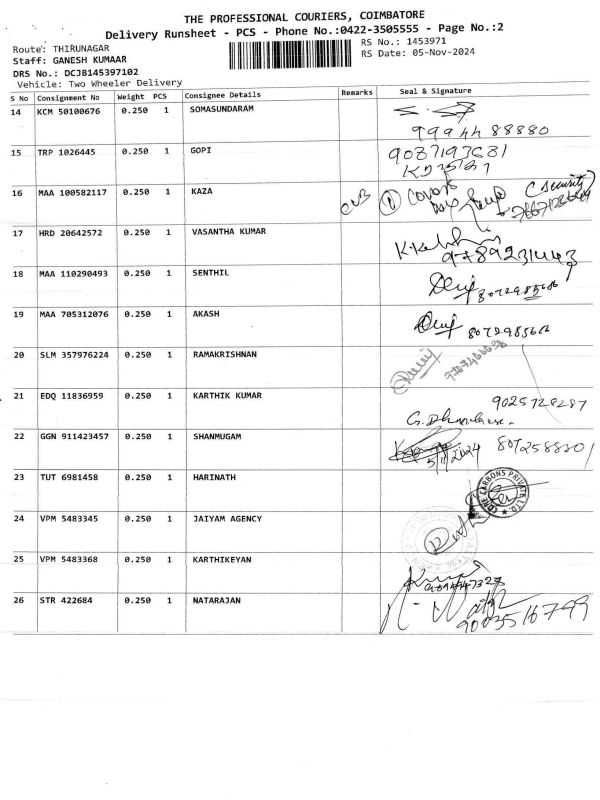 THE PROFESSIONAL COURIERS, COIMBATORE
Delivery Runsheet - PCS - Phone No.:0422-3505555 - Page No.:2
Route: THIRUNAGAR
RS No.: 1453971
Staff: GANESH KUMAAR
RS Date: 05-Nov-2024
DRS No.: DCJB145397102
Vehicle: Two Wheeler Delivery
S No Consignment No Weight PCS Consignee Details Remarks Seal & Signature
14 KCM 50100676 0.250 1 SOMASUNDARAM
99944 88880
15 TRP 1026445 0.250 1 GOPI
16 MAA 100582117 0.250 1 KAZA
17 HRD 20642572 0.250 1 VASANTHA KUMAR
18 MAA 110290493 0.250 1 SENTHIL
19 MAA 705312076 0.250 1 AKASH
20 SLM 357976224 0.250 1 RAMAKRISHNAN
21 EDQ 11836959 0.250 1 KARTHIK KUMAR
9025728287
22 GGN 911423457 0.250 1 SHANMUGAM
5/11/2024
23 TUT 6981458 0.250 1 HARINATH
CORE CARBONS PRIVATE LTD.
24 VPM 5483345 0.250 1 JAIYAM AGENCY
25 VPM 5483368 0.250 1 KARTHIKEYAN
26 STR 422684 0.250 1 NATARAJAN
9003516799